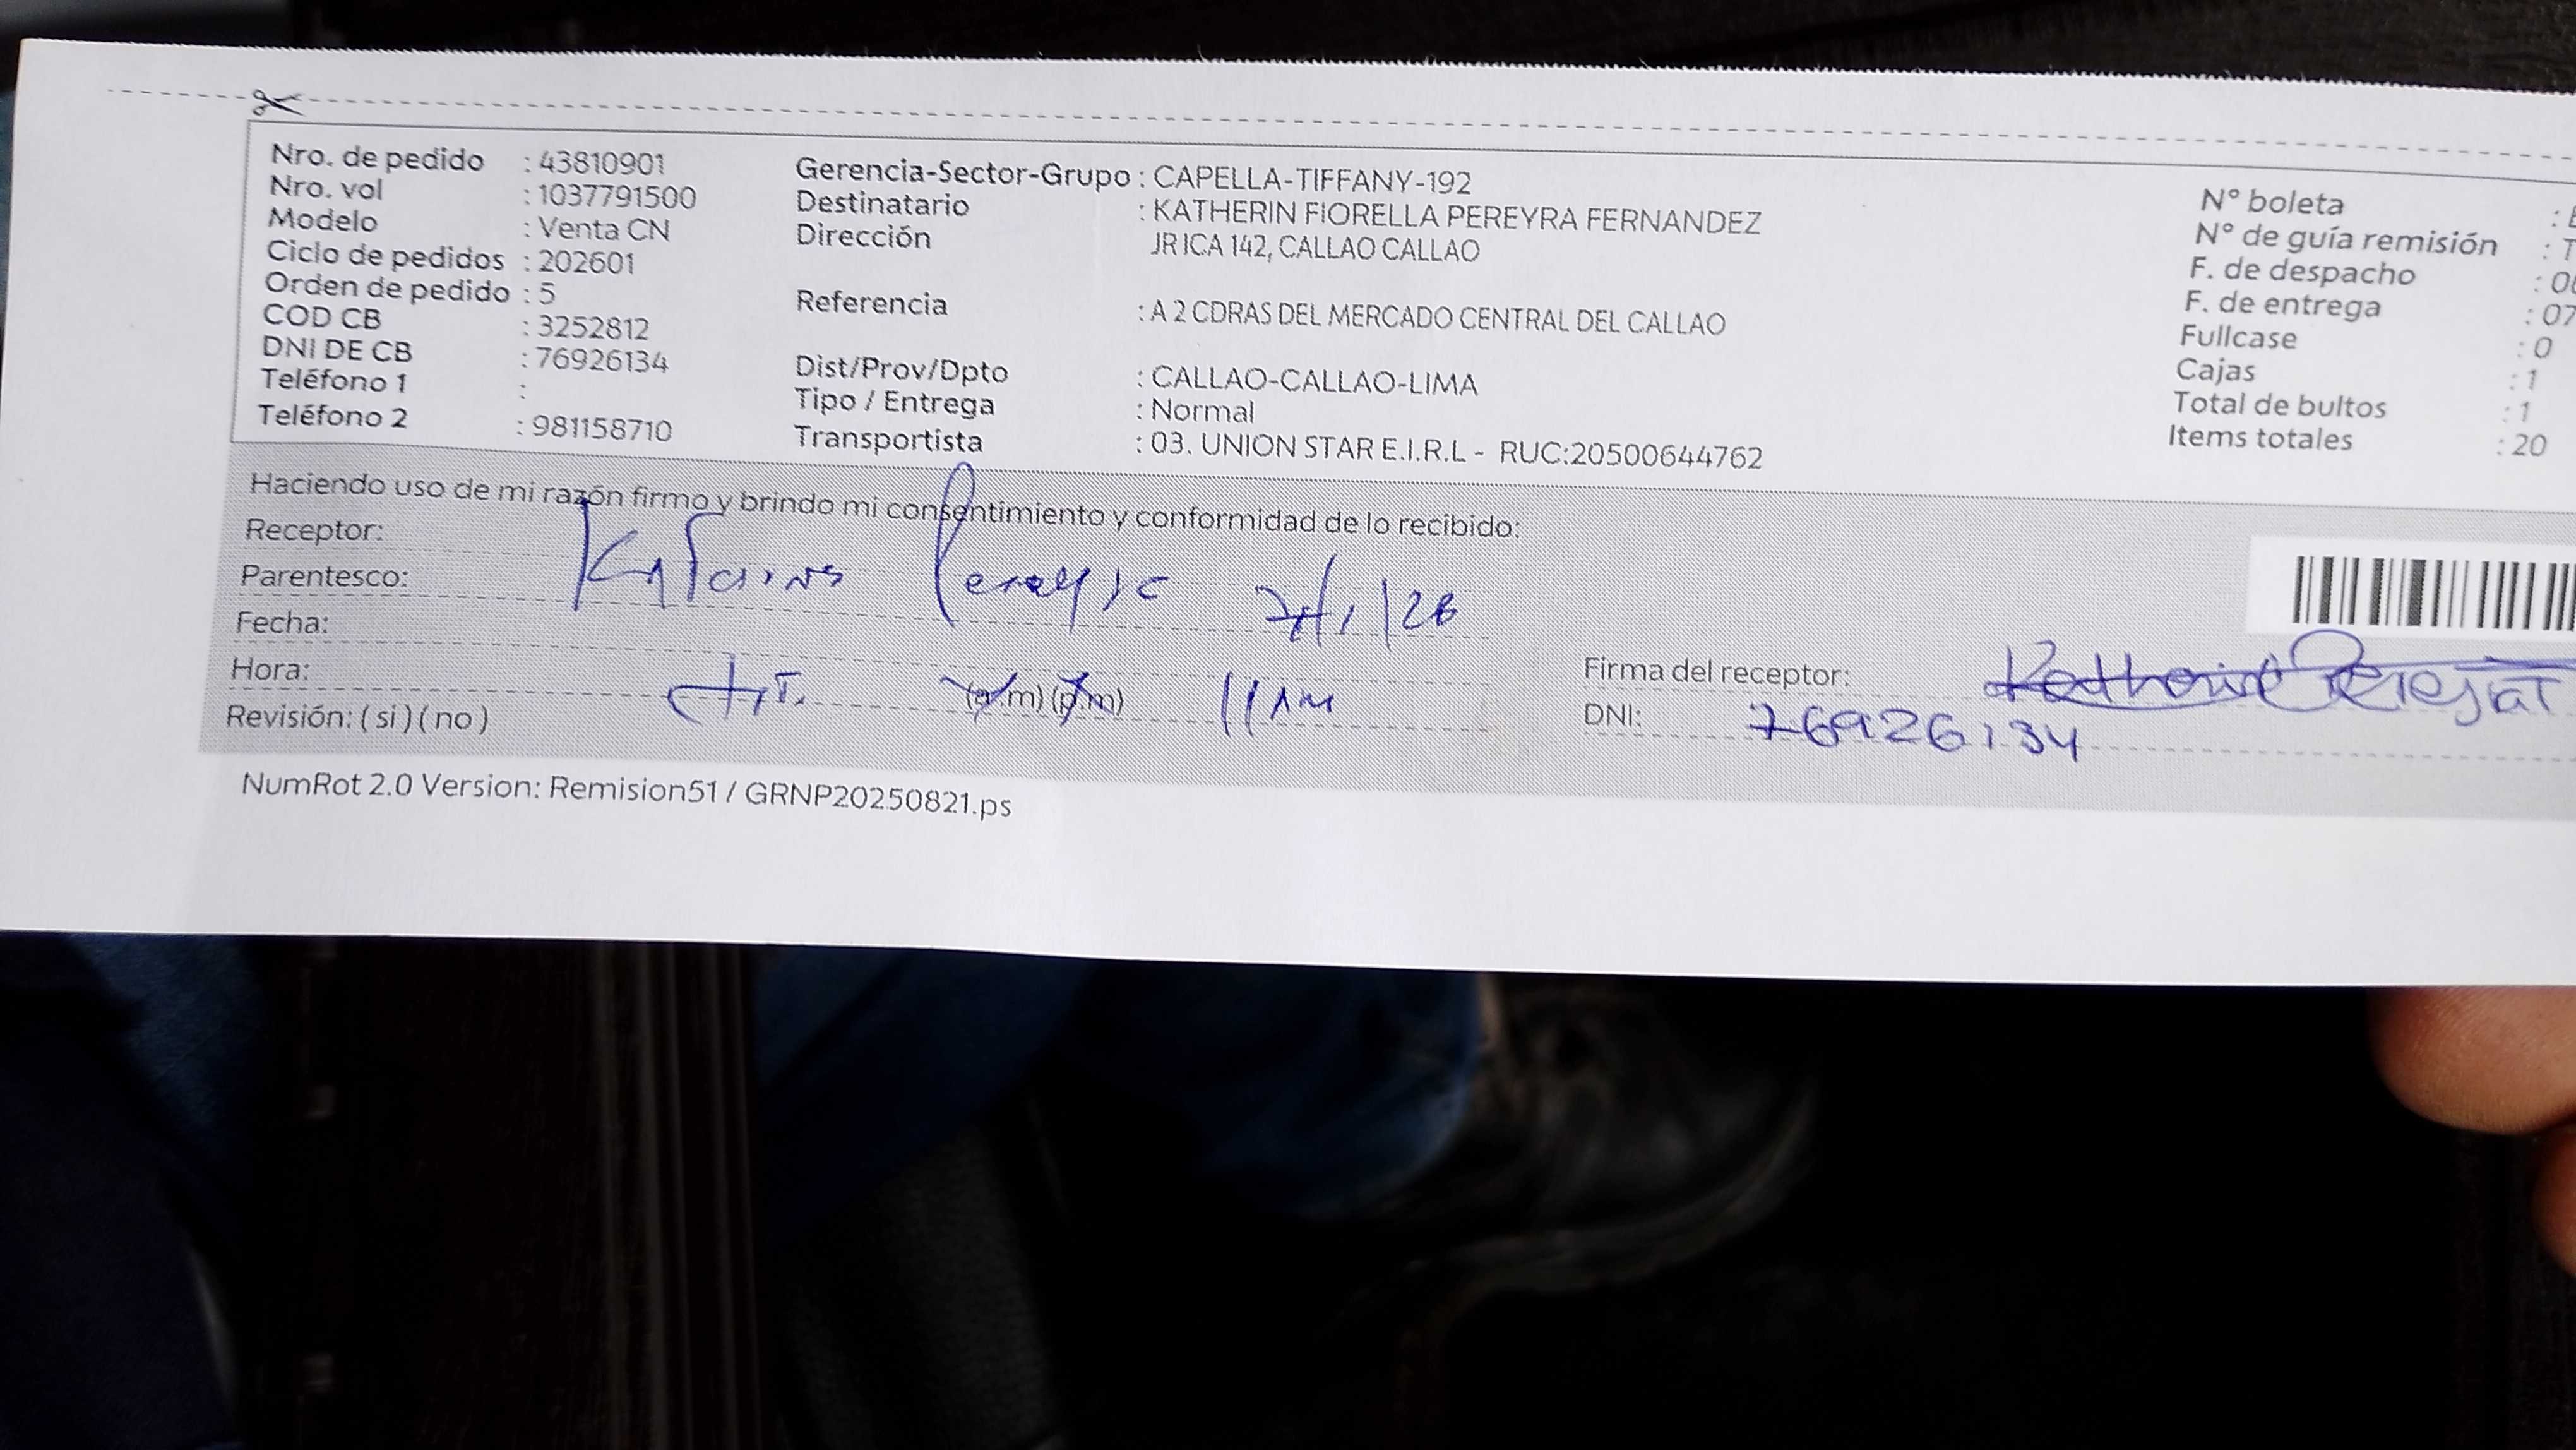 Nro. de pedido : 43810901
Nro. vol : 1037791500
Modelo : Venta CN
Ciclo de pedidos : 202601
Orden de pedido : 5
COD CB : 3252812
DNI DE CB : 76926134
Teléfono 1 :
Teléfono 2 : 981158710
Gerencia-Sector-Grupo : CAPELLA-TIFFANY-192
Destinatario : KATHERIN FIORELLA PEREYRA FERNANDEZ
Dirección JR ICA 142, CALLAO CALLAO
Referencia : A 2 CDRAS DEL MERCADO CENTRAL DEL CALLAO
Dist/Prov/Dpto : CALLAO-CALLAO-LIMA
Tipo / Entrega : Normal
Transportista : 03. UNION STAR E.I.R.L - RUC:20500644762
N° boleta :
N° de guía remisión : T
F. de despacho : 0
F. de entrega : 07
Fullcase : 0
Cajas : 1
Total de bultos : 1
Items totales : 20
Haciendo uso de mi razón firmo y brindo mi consentimiento y conformidad de lo recibido:
Receptor:
Parentesco:
Fecha:
Hora: (a.m) (p.m)
Revisión: ( si ) ( no )
Firma del receptor:
DNI: 76926134
NumRot 2.0 Version: Remision51 / GRNP20250821.ps